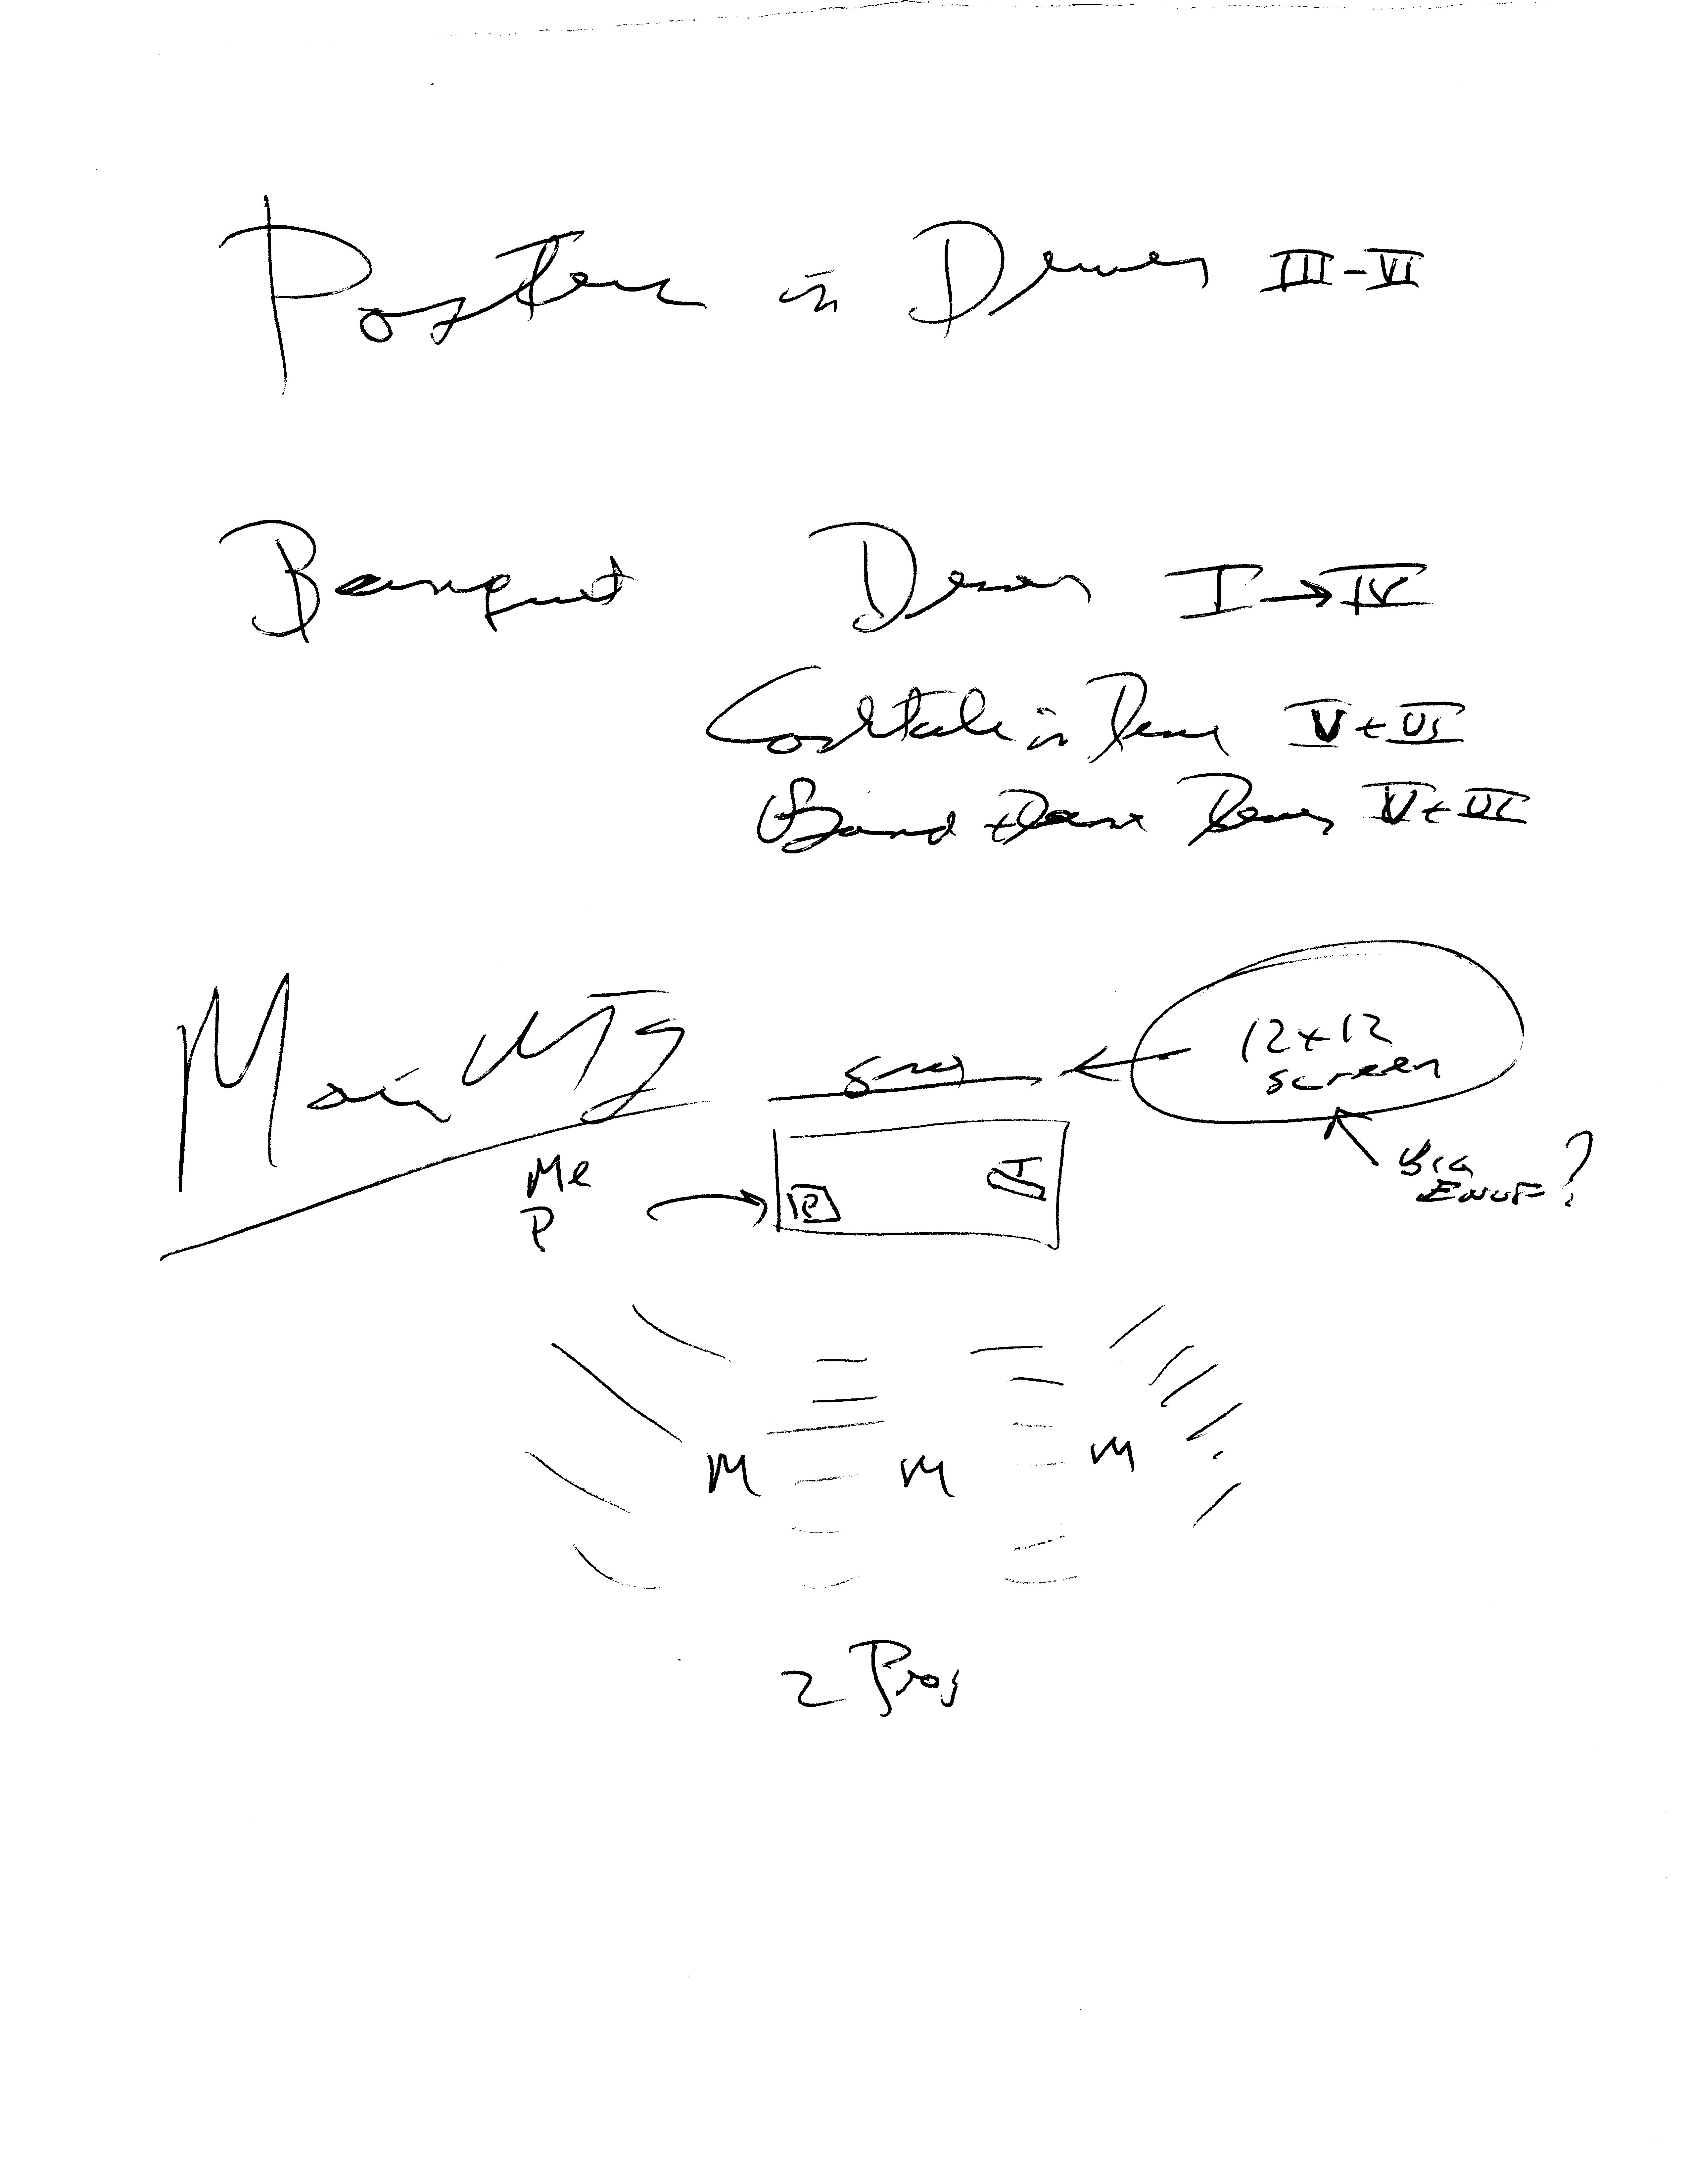 Poster in Denver III-VI
Banquet Denver I → IV
Cocktails in Denver V + VI
Band + Dance Denver V + VI
Main Mtg
12x12
screen
Big
Enuf?
Me
P
P
M M M
2 Proj